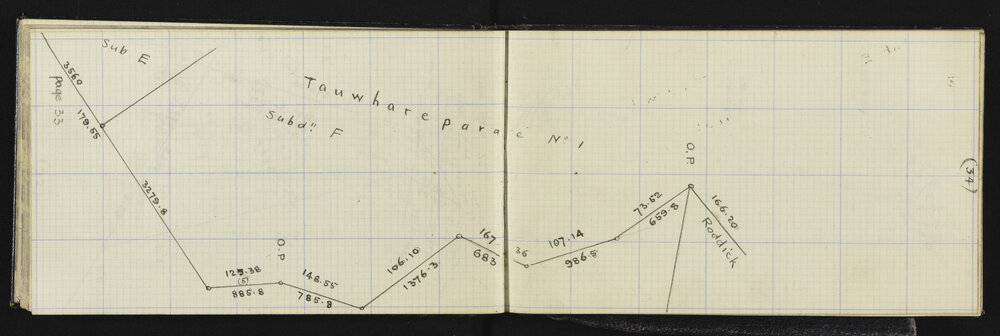 Sub E
3560
page 33
179.55
Tauwhareparae No 1
Subdn F
3279.8
O.P.
(5)
885.8
148.55
785.8
106.10
1376.3
167.36
683
107.14
986.5
73.52
659.8
O.P.
166.20
Roddick
(34)